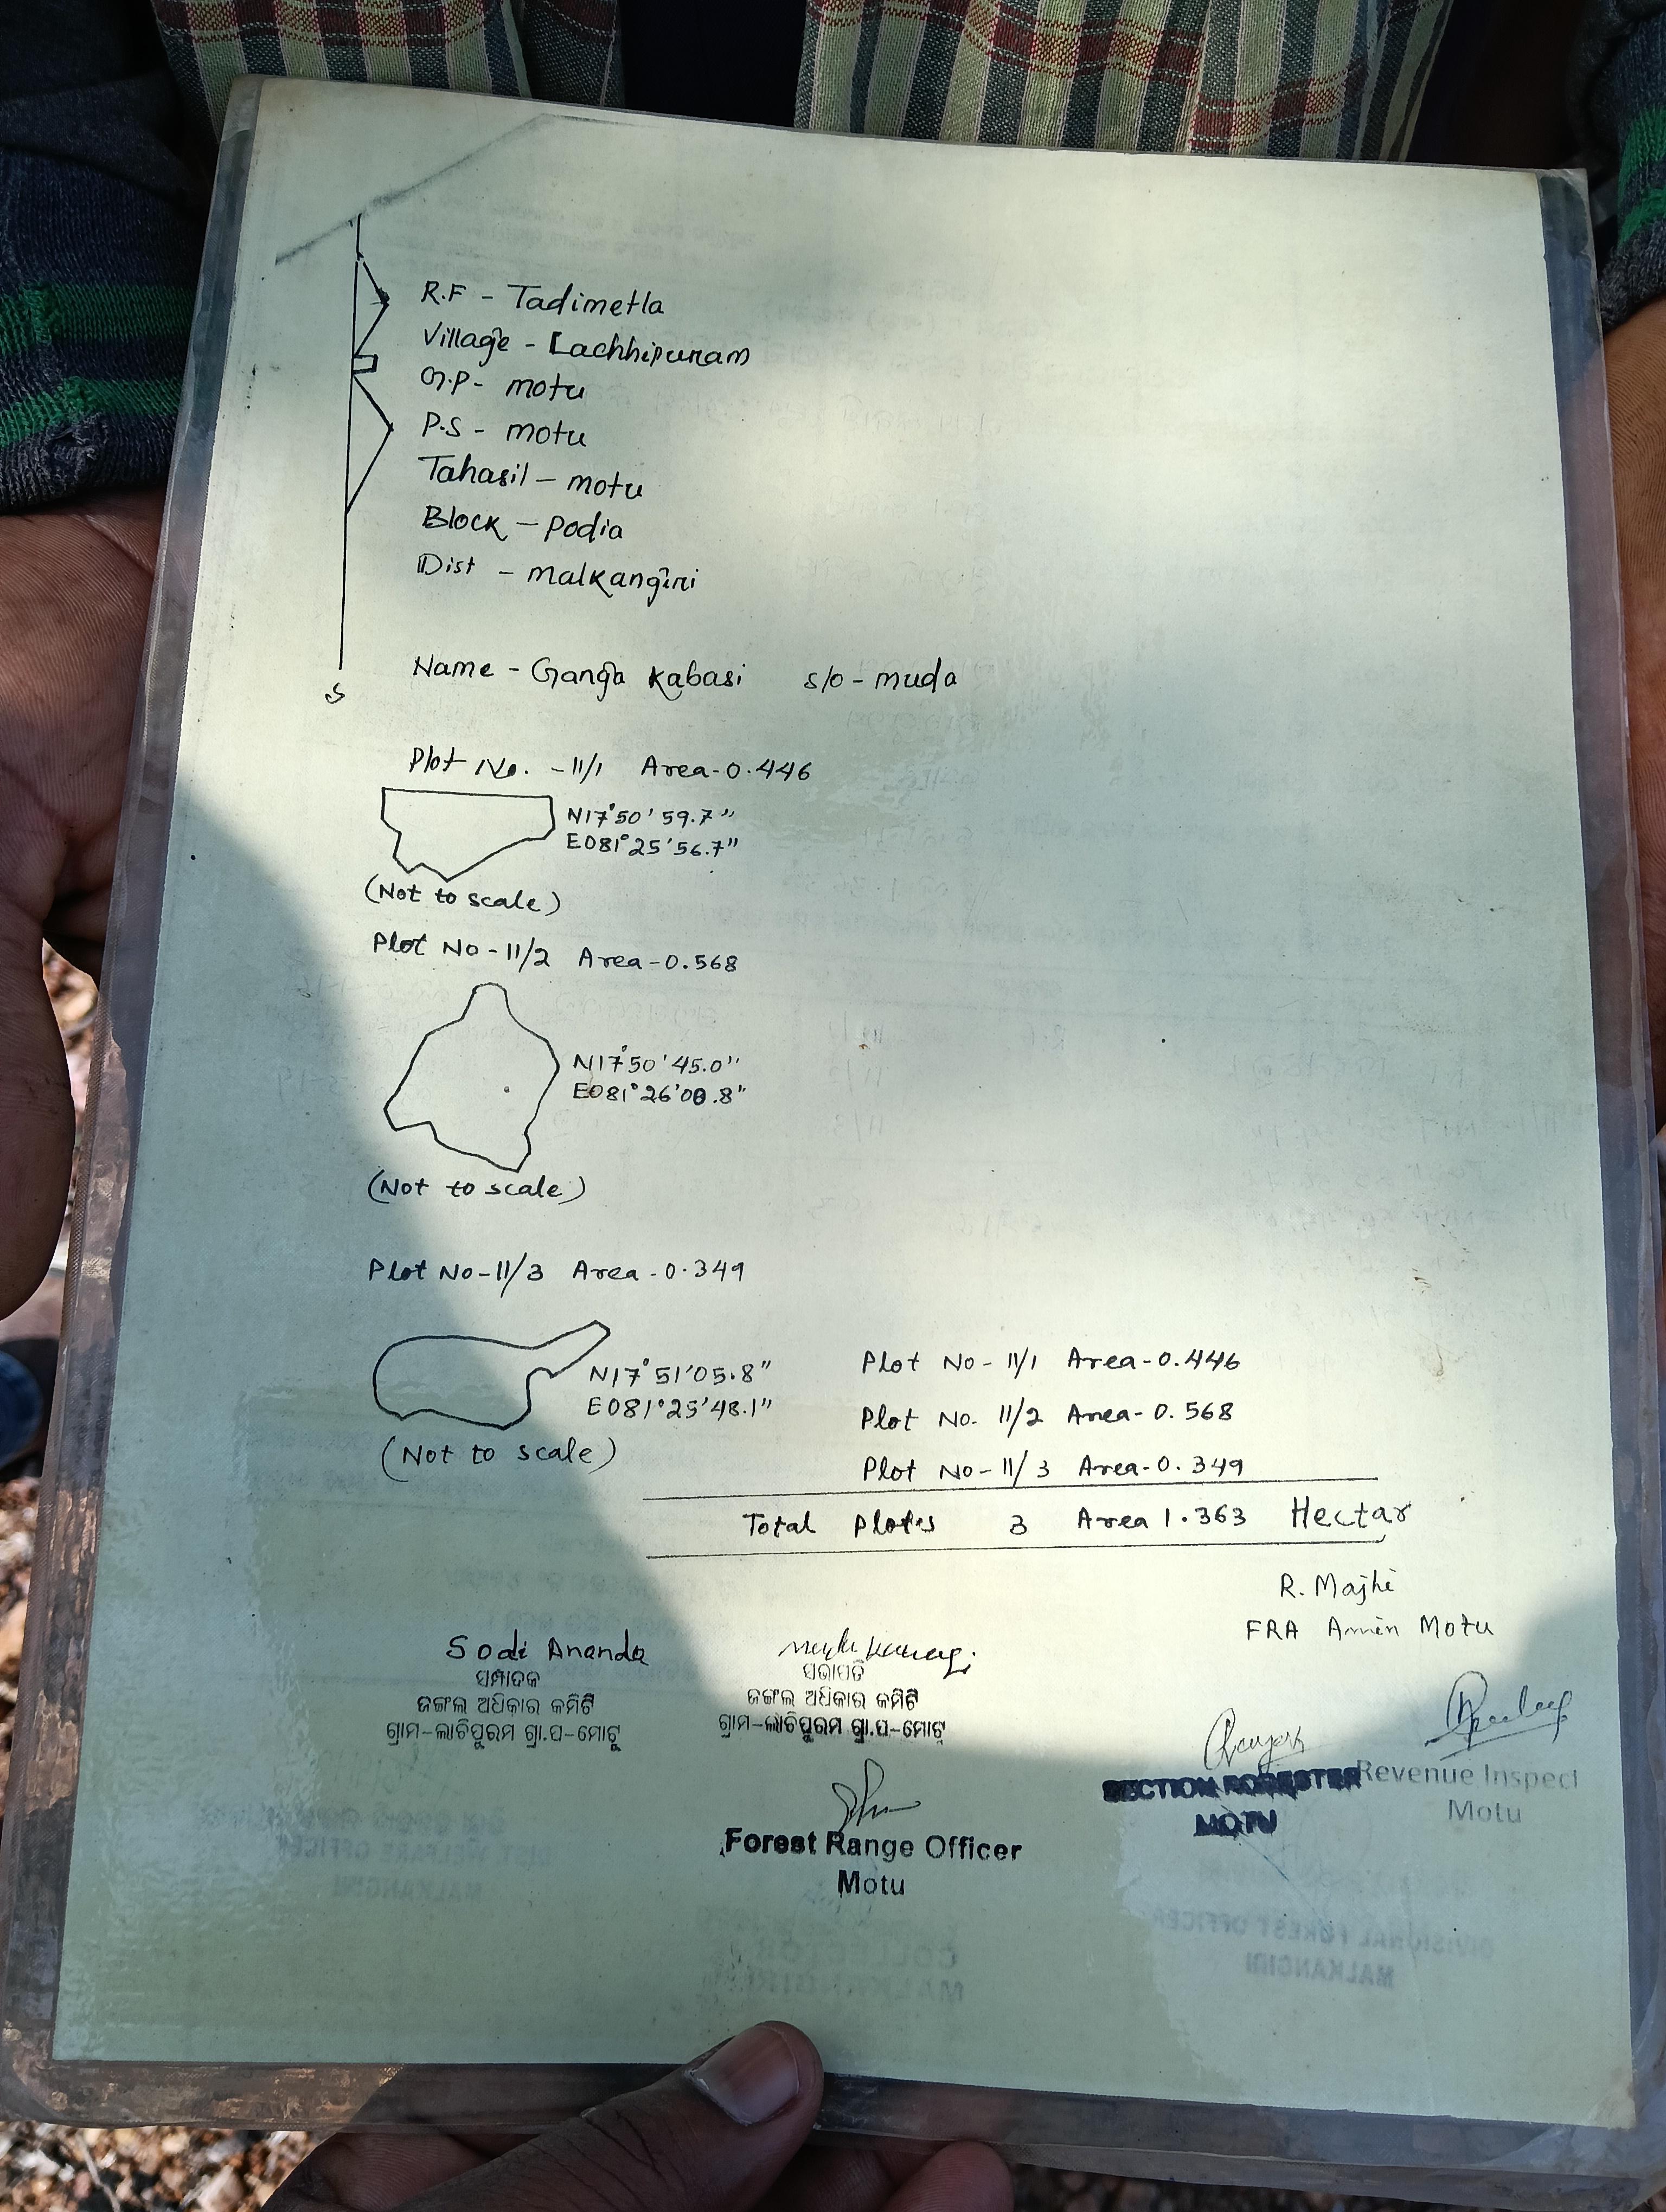 R.F - Tadimetla
Village - Lachhipuram
G.P - motu
P.S - motu
Tahasil - motu
Block - Podia
Dist - malkangiri
S
Name - Ganga Kabasi s/o - muda
Plot No. - 11/1 Area - 0.446
N17°50'59.7"
E081°25'56.7"
(Not to scale)
Plot No - 11/2 Area - 0.568
N17°50'45.0"
E081°26'00.8"
(Not to scale)
Plot No - 11/3 Area - 0.349
N17°51'05.8"
E081°25'48.1"
(Not to scale)
Plot No - 11/1 Area - 0.446
Plot No. 11/2 Area - 0.568
Plot No - 11/3 Area - 0.349
Total Plotes 3 Area 1.363 Hectar
R. Majhi
FRA Amin Motu
Sodi Ananda
ସମ୍ପାଦକ
ଜଙ୍ଗଲ ଅଧିକାର କମିଟି
ଗ୍ରାମ-ଲାଚିପୁରମ ଗ୍ରା.ପ-ମୋଟୁ
ସଭାପତି
ଜଙ୍ଗଲ ଅଧିକାର କମିଟି
ଗ୍ରାମ-ଲାଚିପୁରମ ଗ୍ରା.ପ-ମୋଟୁ
SECTION FORESTER
MOTU
Revenue Inspect
Motu
Forest Range Officer
Motu